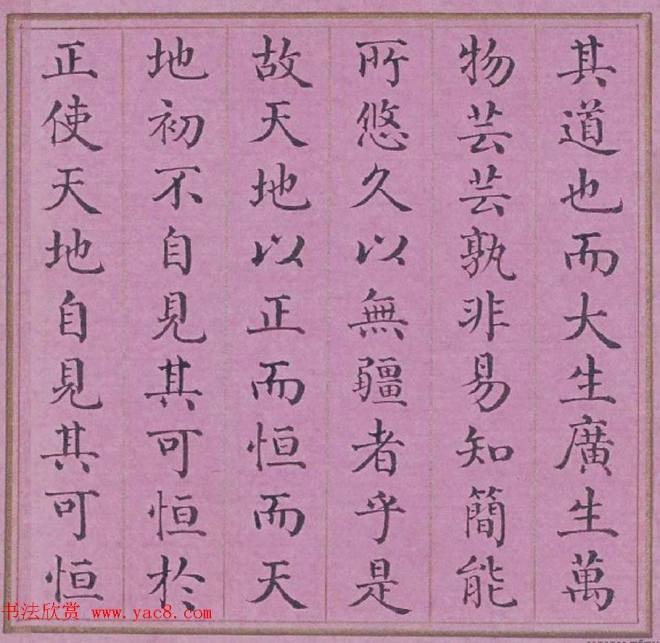 其道也而大生廣生萬
物芸芸孰非易知簡能
所悠久以無疆者乎是
故天地以正而恒而天
地初不自見其可恒於
正使天地自見其可恒
书法欣赏 www.yac8.com